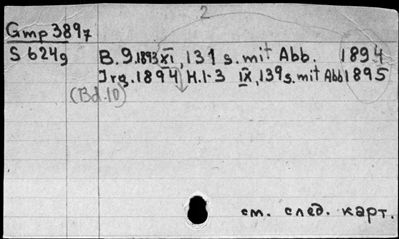 2
Gmp 3897
S 624g B. 9. 1893 XI, 131 s. mit Abb. 1894
Jrg. 1894 H. 1-3 IX, 139 s. mit Abb 1895
(Bd. 10)
см. след. карт.